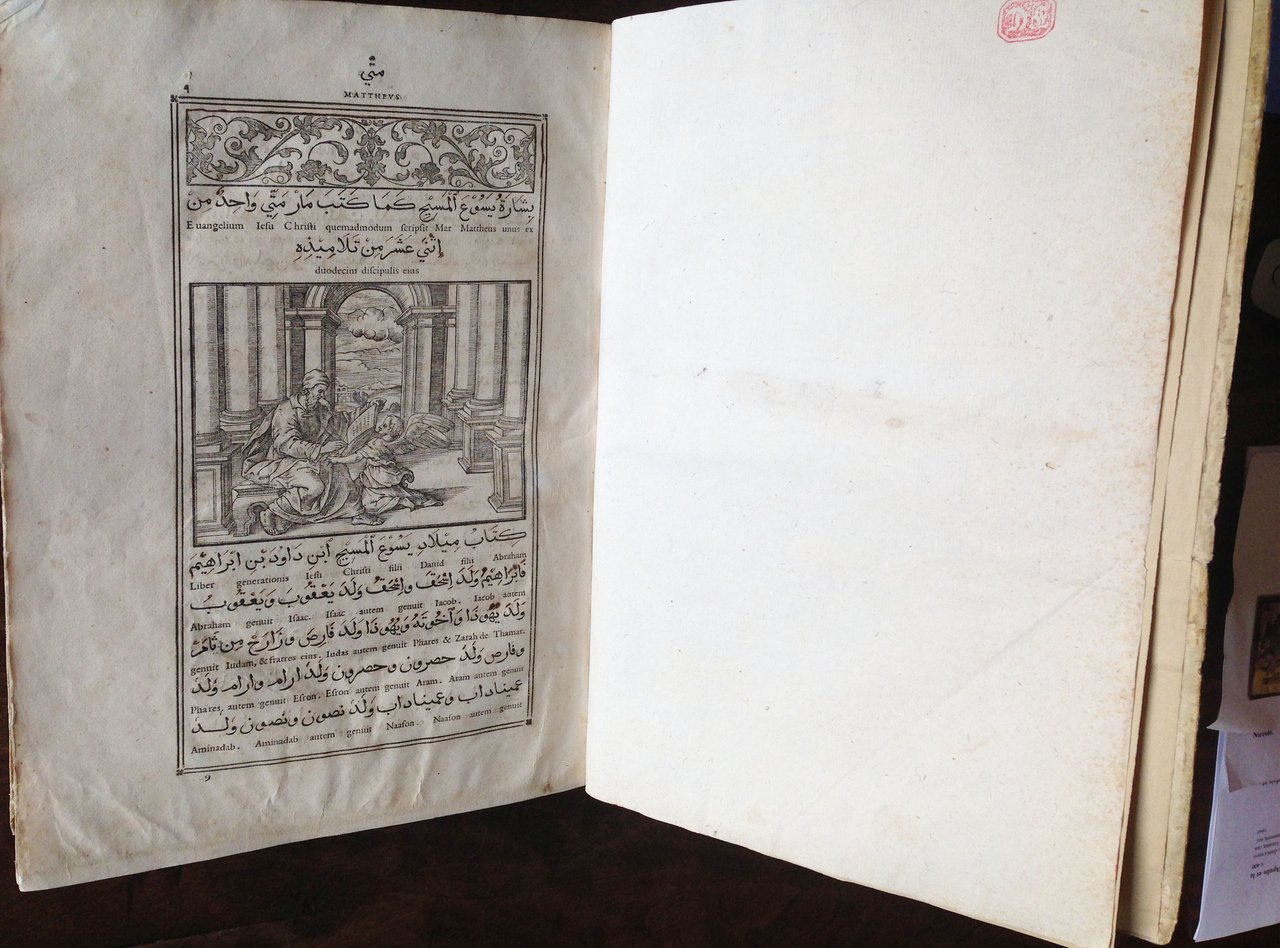 متّي
MATTHEVS
بِشَارَةُ يَسُوْعَ ٱلْمَسِيْحِ كَمَا كَتَبَ مَارْ مَتِّي وَاحِدٌ مِنْ
Euangelium Iesu Christi quemadmodum scripsit Mar Mattheus unus ex
إِثْنَيْ عَشَرَ مِنْ تَلَامِيْذِهِ
duodecim discipulis eius
كِتَابُ مِيْلَادِ يَسُوْعَ ٱلْمَسِيْحِ ٱبْنِ دَاوُدَ بْنِ ابْرَاهِيْمَ
Liber generationis Iesu Christi filii Dauid filii Abraham
فَابْرَاهِيْمُ وَلَدَ إِسْحَقَ وَإِسْحَقُ وَلَدَ يَعْقُوْبَ وَيَعْقُوبُ
Abraham genuit Isaac. Isaac autem genuit Iacob. Iacob autem
وَلَدَ يَهُوْذَا وَاخْوَتَهُ وَيَهُوْذَا وَلَدَ فَارِصَ وَزَارَحَ مِنْ تَامَرْ
genuit Iudam, & fratres eius. Iudas autem genuit Phares & Zarah de Thamar.
وفارص وَلَدَ حصرون وحصرون وَلَدَ ارام وارام وَلَدَ
Phares, autem genuit Esron. Esron autem genuit Aram. Aram autem genuit
عميناداب وعميناداب وَلَدَ نصون ونصون وَلَدَ
Aminadab. Aminadab autem genuit Naason. Naason autem genuit
9
Niccolò.